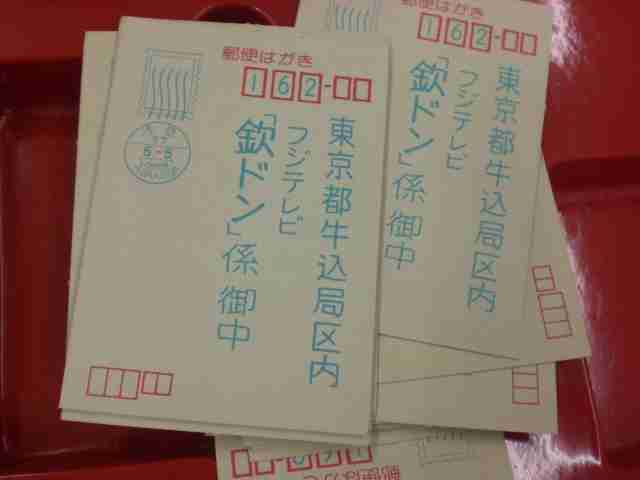 郵便はがき
162-
東京都牛込局区内
フジテレビ
「欽ドン」係御中
57
5-5
郵便はがき
162-
東京都牛込局区内
フジテレビ
「欽ドン」係御中
郵便はがき